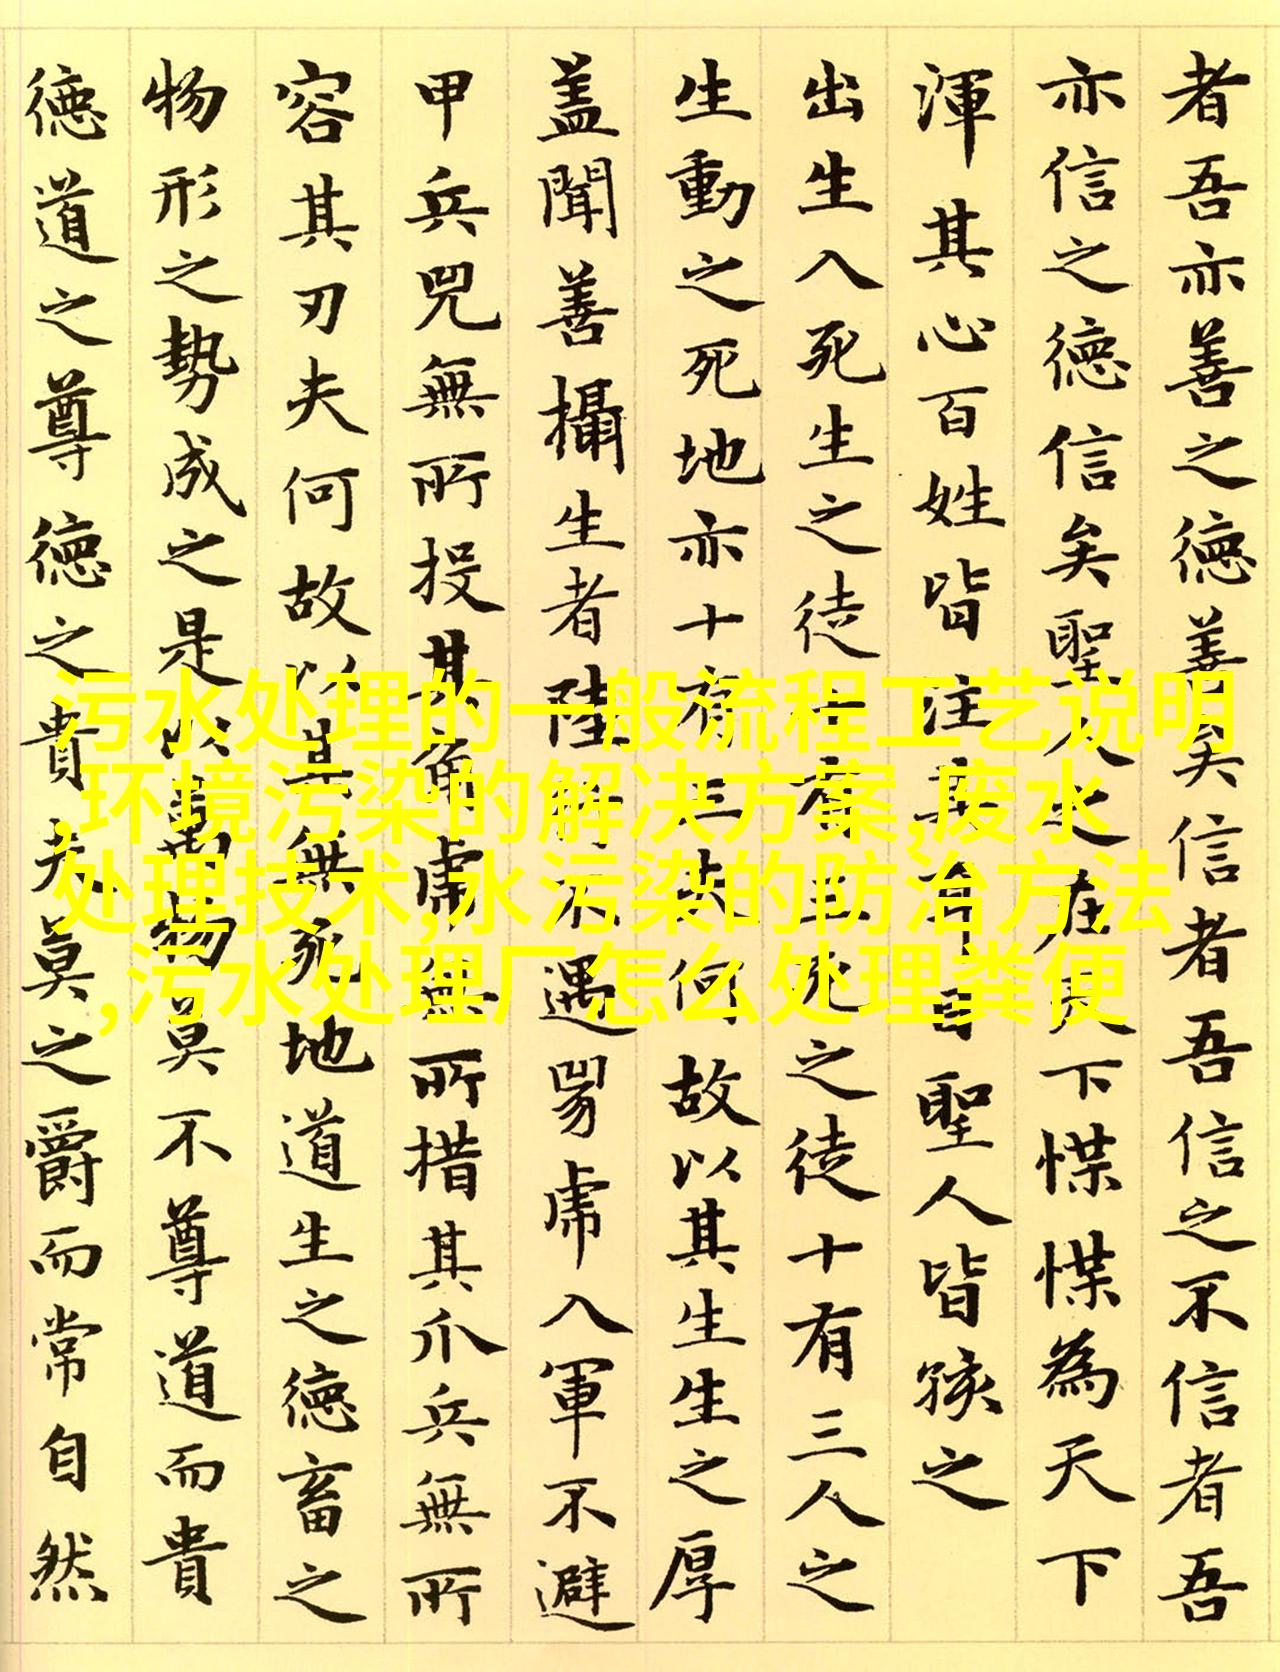 者吾亦善之德善矣信者吾信之不信者吾
亦信之德信矣聖人之在天下惵惵為天下
渾其心百姓皆注其耳目聖人皆孩之
出生入死生之徒十有三死之徒十有三人之
生動之死地亦十有三夫何故以其生生之厚
蓋聞善攝生者陸行不遇兕虎入軍不避
甲兵兕無所投其角虎無所措其爪兵無所
容其刃夫何故以其無死地道生之德畜之
物形之勢成之是以萬物莫不尊道而貴
德道之尊德之貴夫莫之爵而常自然
污水处理的一般流程工艺说明
,环境污染的解决方案,废水
处理技术,水污染的防治方法
,污水处理厂怎么处理粪便